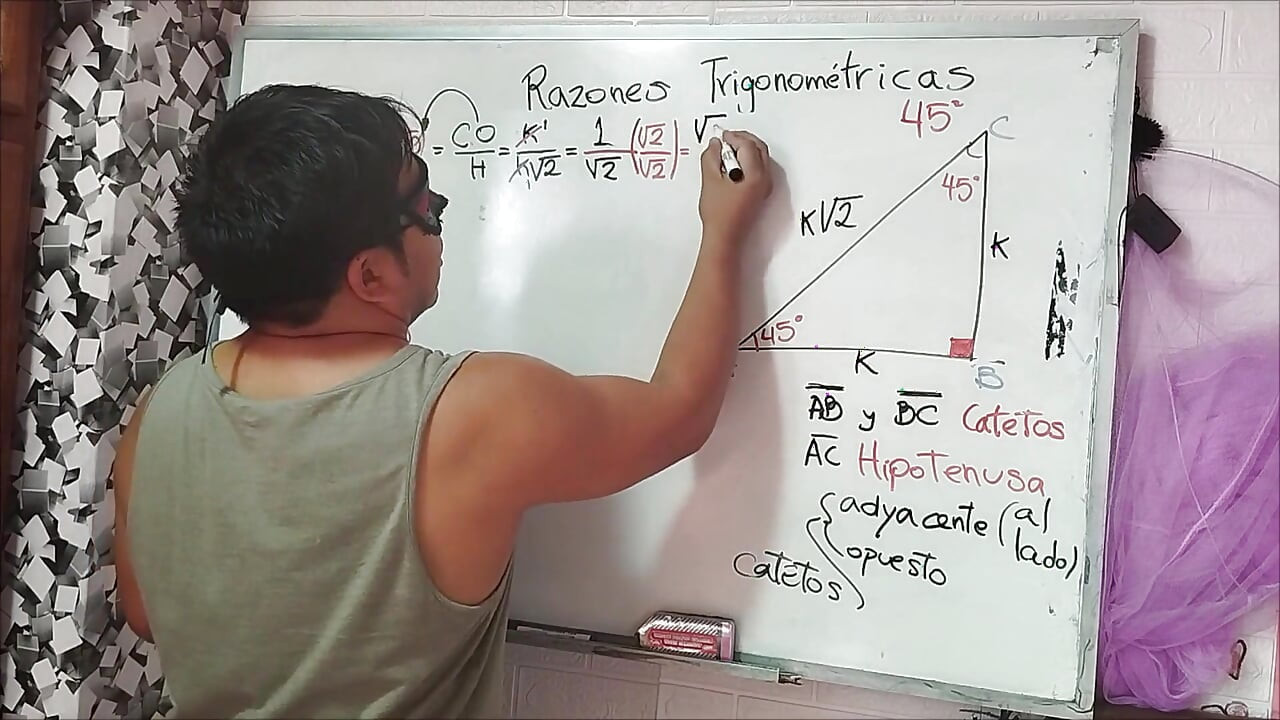 Razones Trigonométricas
45°
= CO/H = K¹/K√2 = 1/√2 (√2/√2) = √
C
45°
K√2
K
45°
K
B
AB y BC Catetos
AC Hipotenusa
Catetos { adyacente (al lado)
opuesto